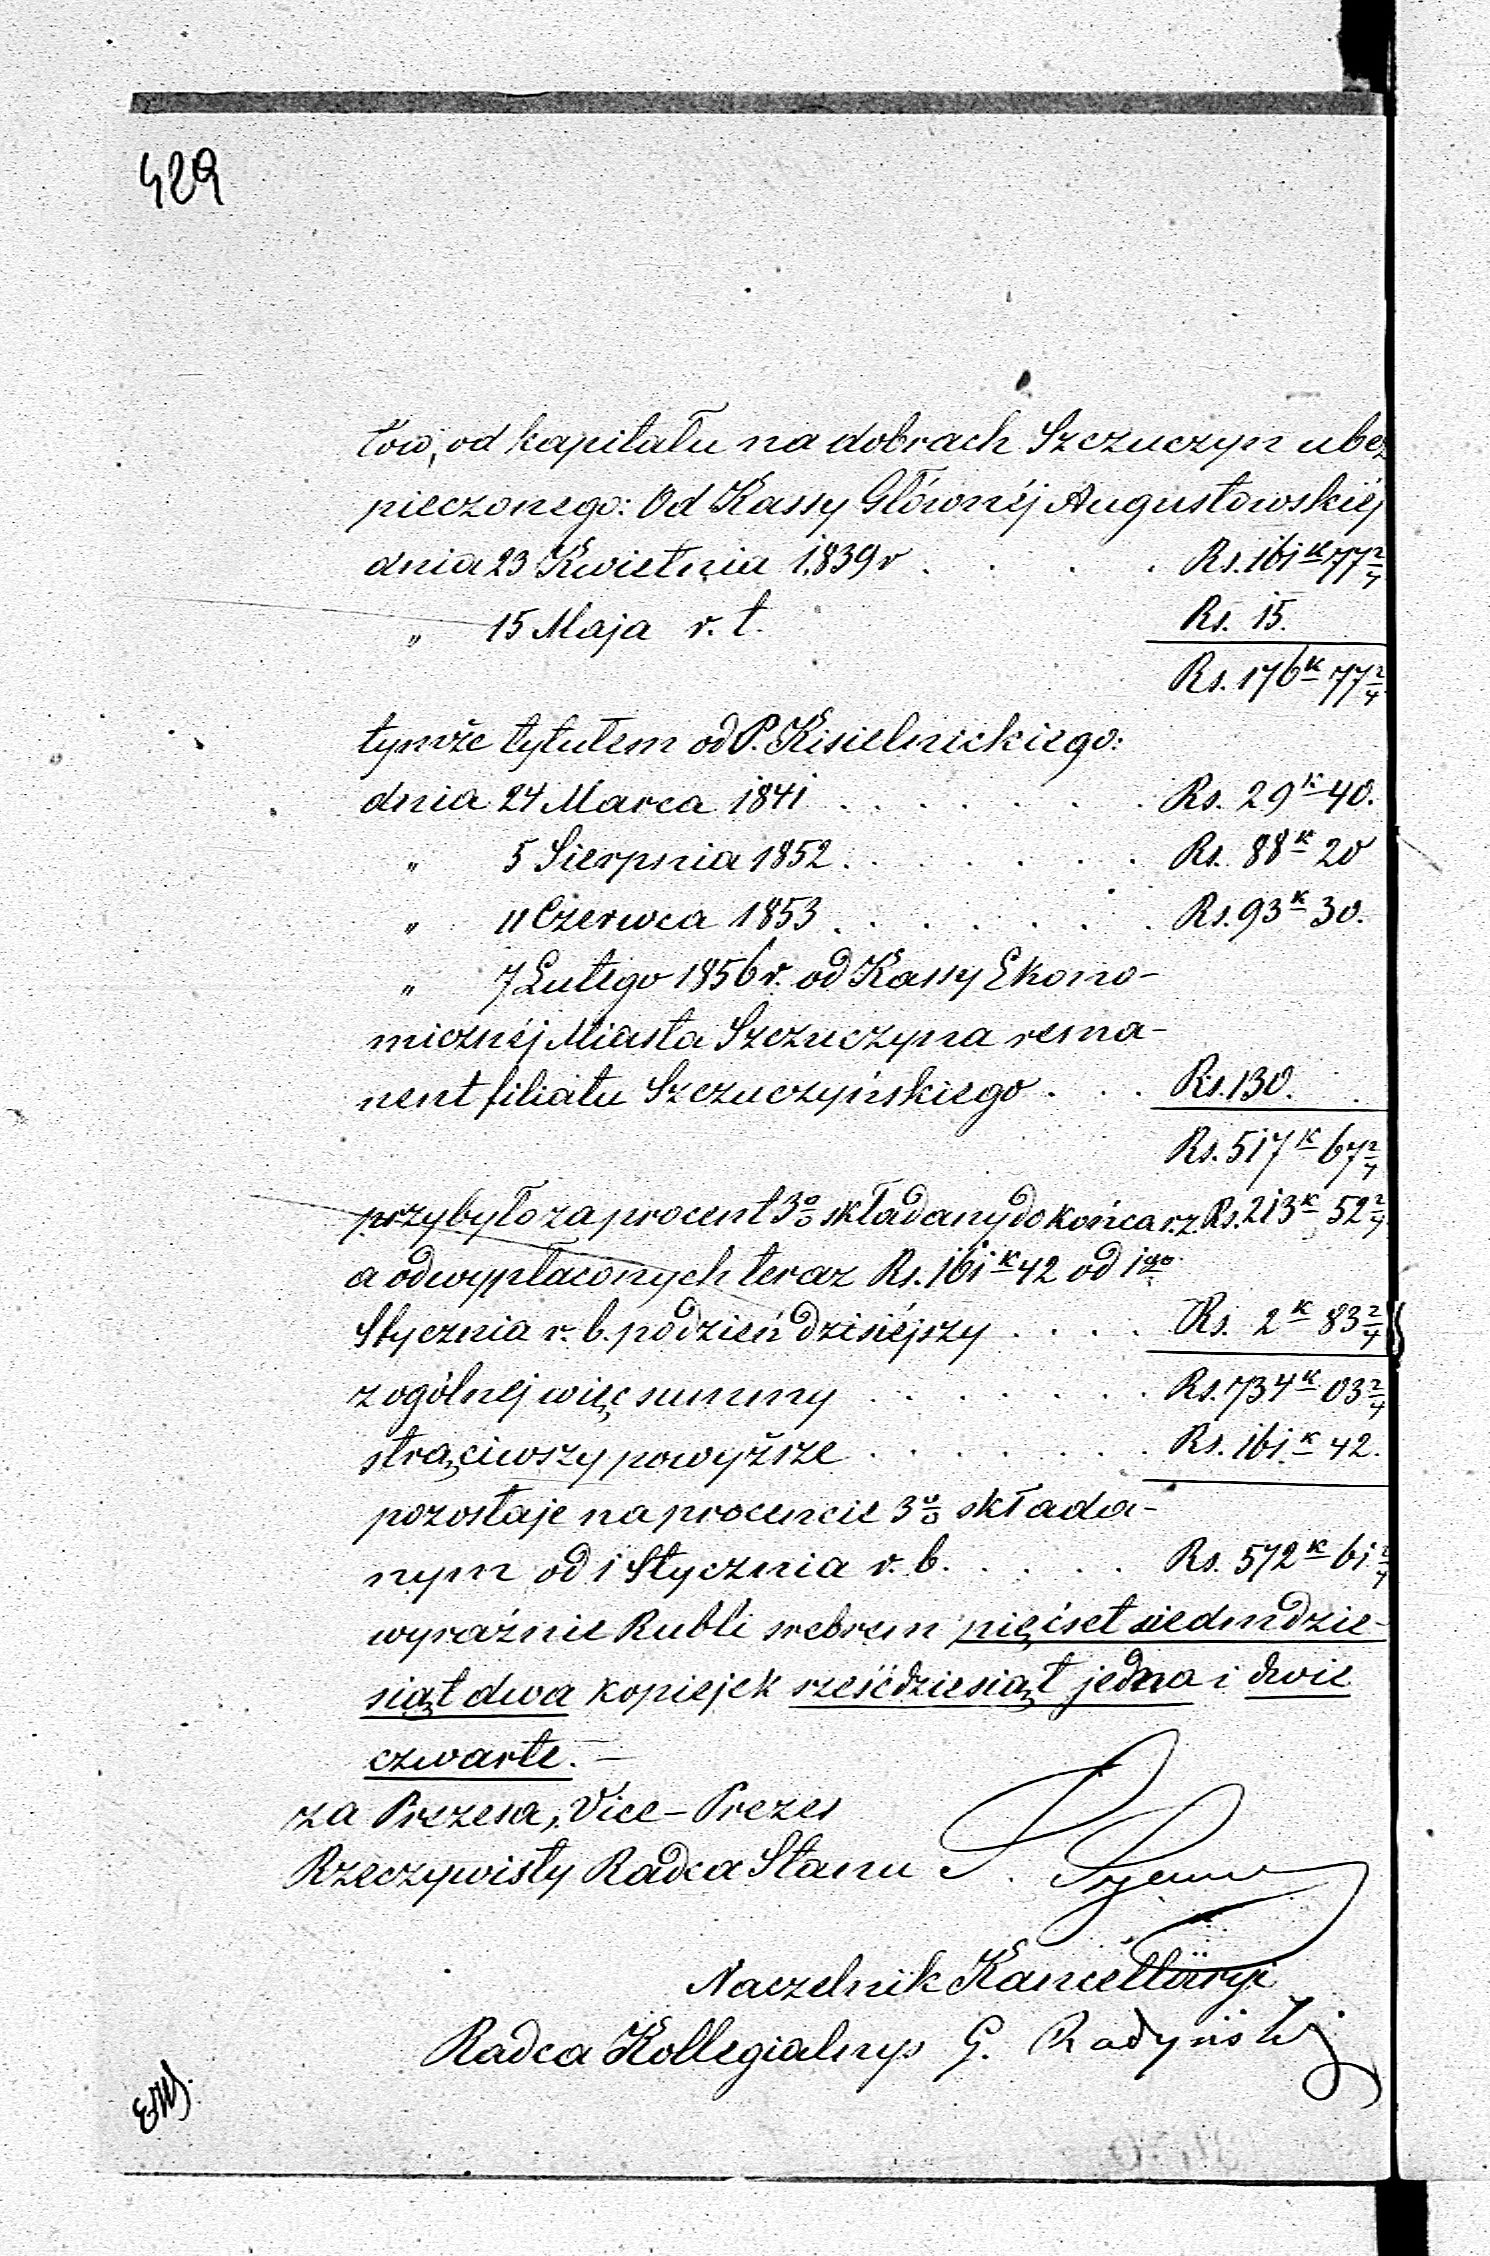 429
łów, od kapitału na dobrach Szczuczyn ubez
pieczonego: Od Kassy Głównéj Augustowskiéj
dnia 23 Kwietnia 1839 r . . . . Rs. 161 k 77 2/4
" 15 Maja r. t. Rs. 15.
Rs. 176 k 77 2/4
tymże tytułem od P. Kisielnickiego:
dnia 24 Marca 1841 . . . . . . . Rs. 29 k 40.
" 5 Sierpnia 1852 . . . . . . . Rs. 88 k 20
" 11 Czerwca 1853 . . . . . . . Rs. 93 k 30.
" 7 Lutego 1856 r. od Kassy Ekono-
micznéj Miasta Szczuczyna rema-
nent filiału Szczuczyńskiego . . . Rs. 130.
Rs. 517 k 67 2/4
przybyło za procent 3% składany do końca r. z. Rs. 213 k 52 2/4
a od wypłaconych teraz Rs. 161 k 42 od 1go
Stycznia r. b. po dzień dzisiéjszy . . . . Rs. 2 k 83 2/4
z ogólnej więc summy . . . . . . . Rs. 734 k 03 2/4
strąciwszy powyższe . . . . . . . Rs. 161 k 42.
pozostaje na procencie 3% składa-
nym od 1 Stycznia r. b. . . . . . Rs. 572 k 61 2/4
wyraźnie Rubli srebrem pięćset siedmdzie-
siąt dwa kopiejek sześćdziesiąt jedna i dwie
czwarte. —
za Prezesa, Vice-Prezes
Rzeczywisty Radca Stanu
Naczelnik Kancellaryi
Radca Kollegialny G. Radyński